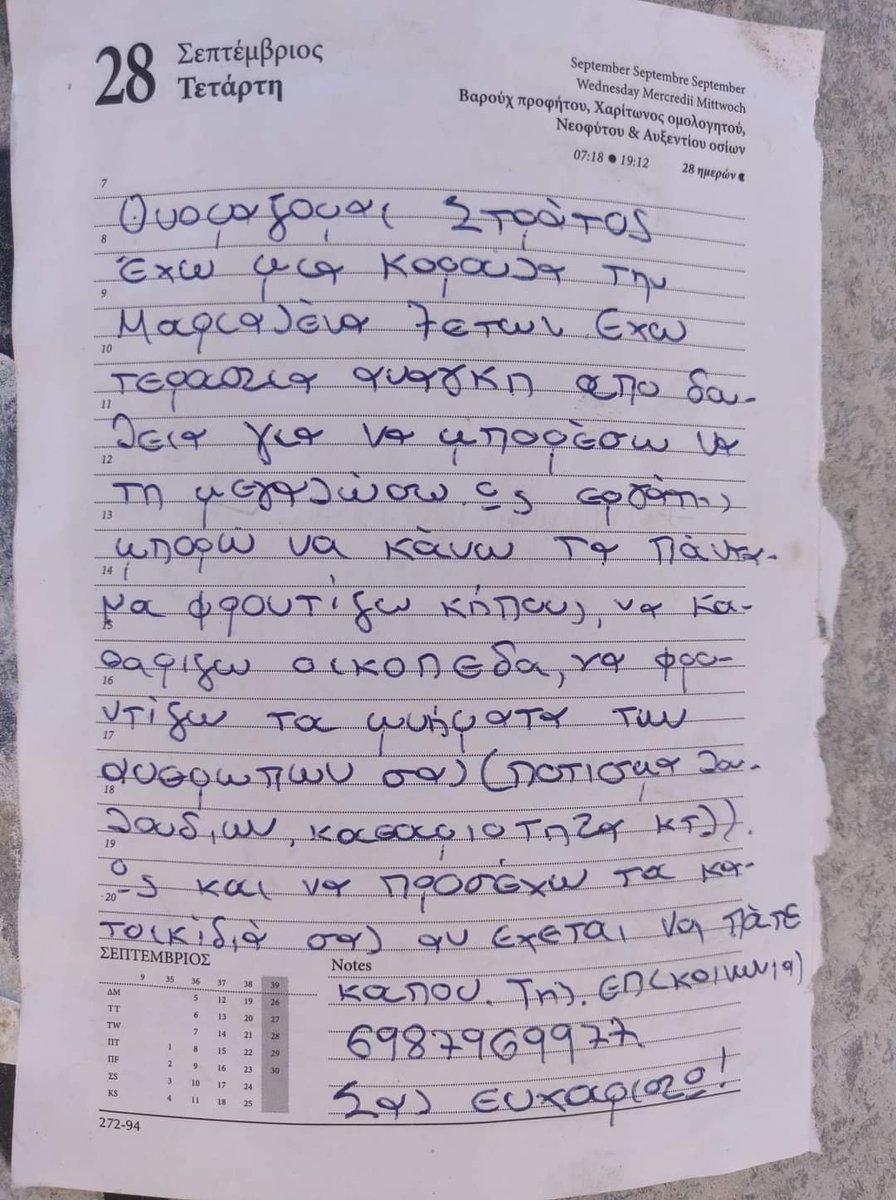 28 Σεπτέμβριος
Τετάρτη
September Septembre September
Wednesday Mercredii Mittwoch
Βαρούχ προφήτου, Χαρίτωνος ομολογητού,
Νεοφύτου & Αυξεντίου οσίων
07:18 ● 19:12 28 ημερών
7
Ονομαζομαι Στράτος
8
Έχω μια Κορουλα την
9
Μαριαλένα 7 ετων. Εχω
10
τεραστια αναγκη απο δου-
11
λεια για να μπορέσω να
12
τη μεγαλώσω. Ως εργάτης
13
μπορώ να κάνω τα πάντα.
14
Να φροντίζω κήπους, να κα-
15
θαριζω οικοπεδα, να φρο-
16
ντίζω τα μνήματα των
17
ανθρωπων σας (ποτισμα λου-
18
λουδιων, καθαριοτητα κτλ).
19
Ως και να προσέχω τα κα-
20
τοικίδιά σας αν εχεται να πάτε
καπου. Τηλ. Επικοινωνιας
6987969977
Σας ευχαριστω!
ΣΕΠΤΕΜΒΡΙΟΣ
Notes
9 35 36 37 38 39
ΔΜ 5 12 19 26
ΤΤ 6 13 20 27
ΤW 7 14 21 28
ΠΤ 1 8 15 22 29
ΠF 2 9 16 23 30
ΣS 3 10 17 24
ΚS 4 11 18 25
272-94